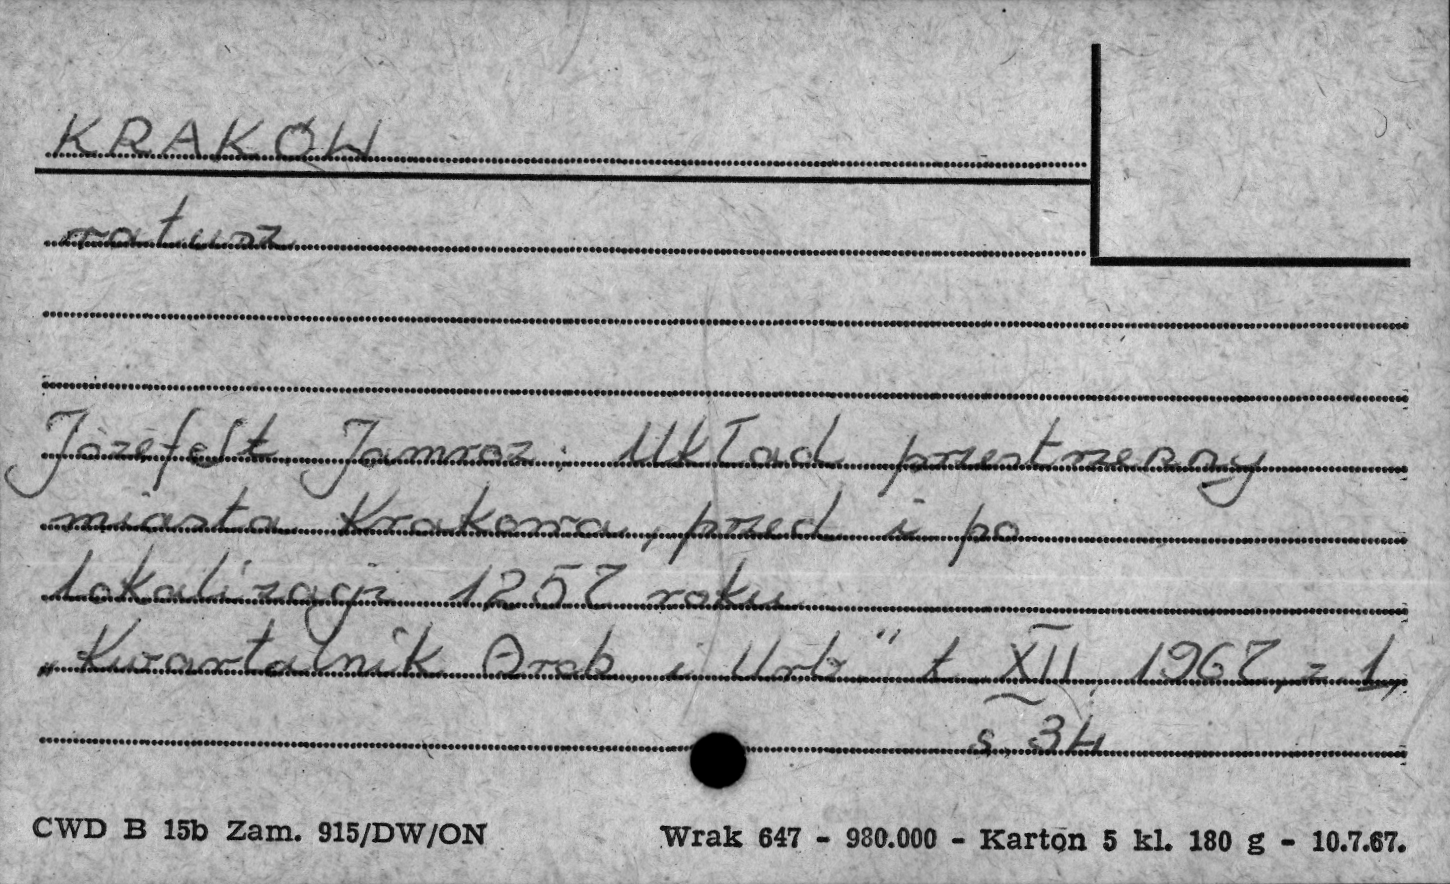 KRAKÓW
ratusz
Józef St. Jamroz: Układ przestrzenny
miasta Krakowa, przed i po
lokalizacji 1257 roku
„Kwartalnik Arch. i Urb." t. XII, 1967, z 1,
s. 34
CWD B 15b Zam. 915/DW/ON
Wrak 647 - 980.000 - Karton 5 kl. 180 g - 10.7.67.